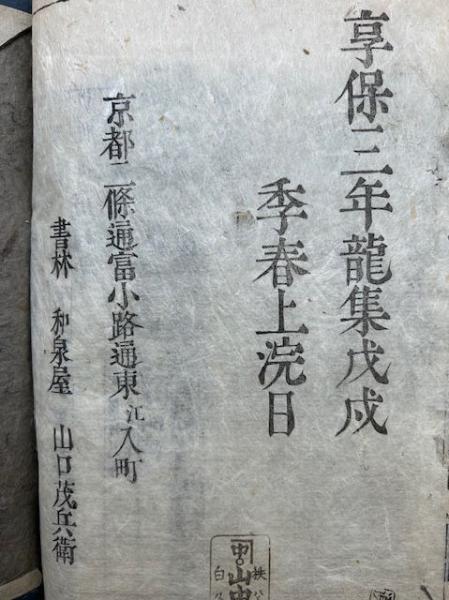 享保三年龍集戊戌
季春上浣日
京都二條通富小路通東江入町
書林 和泉屋 山口茂兵衛